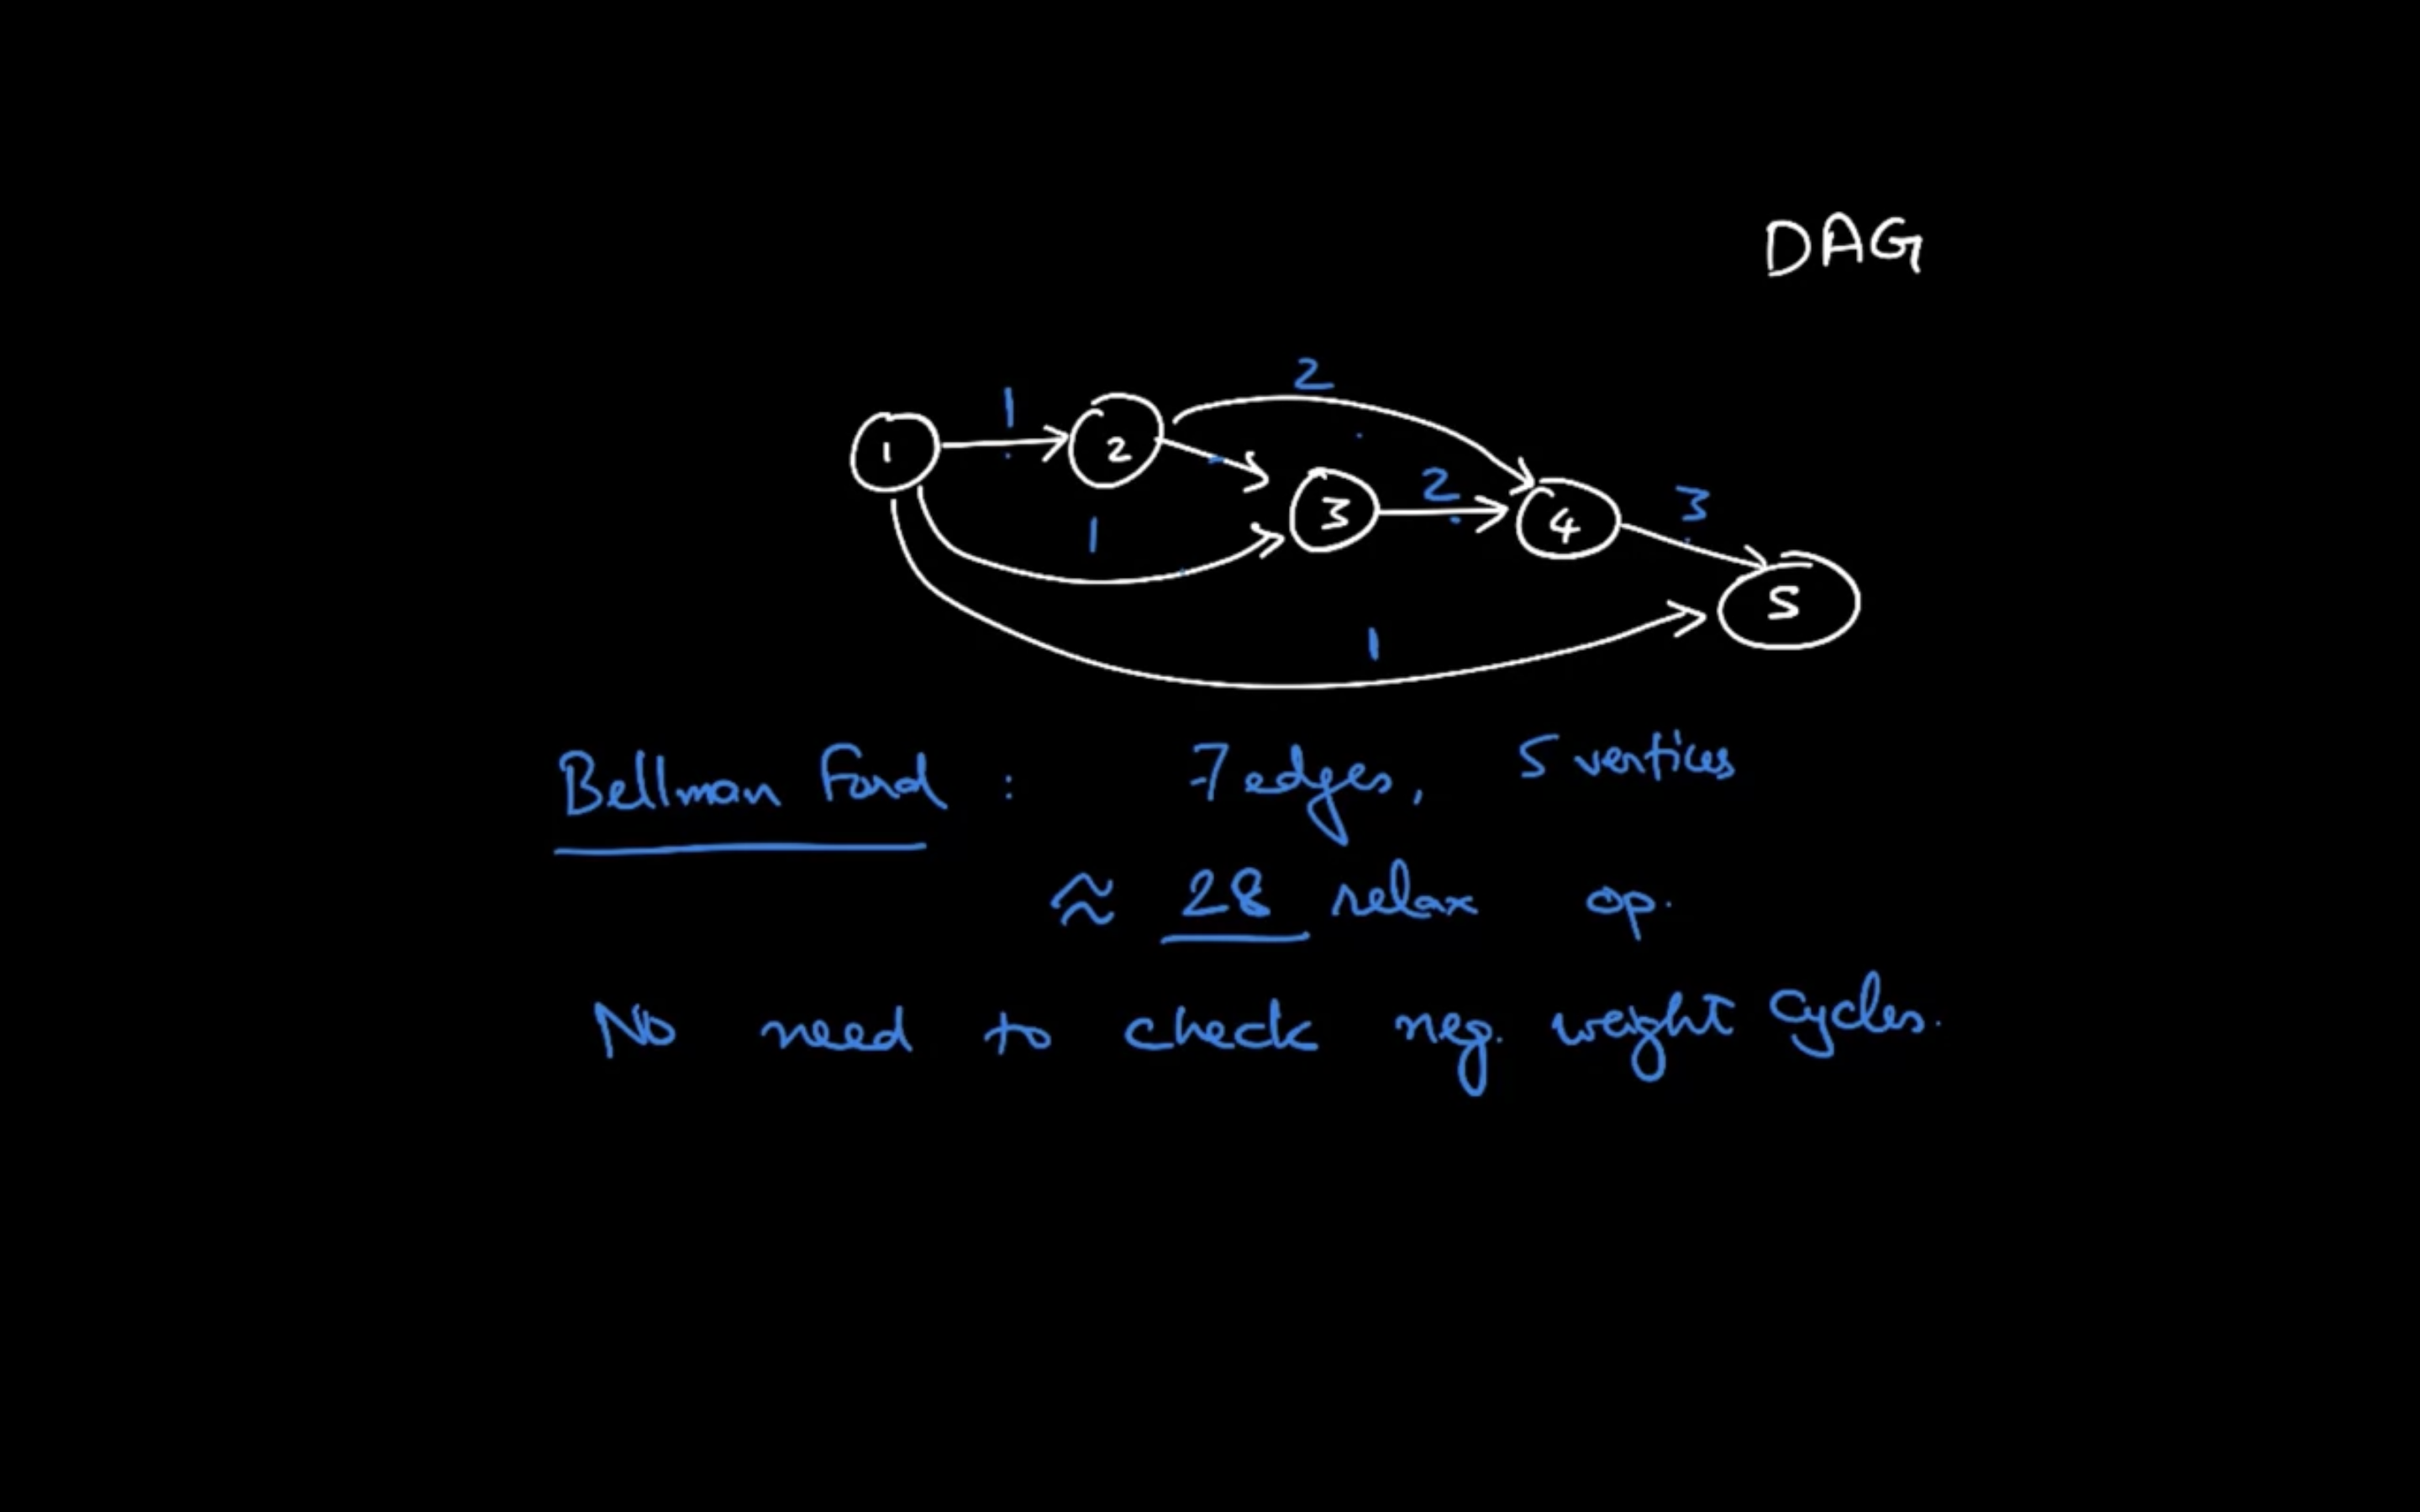 DAG
2
1
1 2 3 4 5
2
3
1
1
Bellman Ford : 7 edges, 5 vertices
≈ 28 relax op.
No need to check neg. weight cycles.